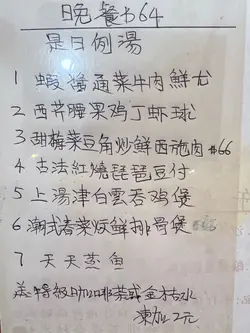 晚餐$64
是日例湯
1 蝦醬通菜牛肉鮮尤
2 西芹腰果鸡丁虾球
3 甜梅菜豆角炒鮮西施肉 $66
4 古法紅燒琵琶豆付
5 上湯津白雲吞鸡煲
6 潮式春菜煲鮮排骨煲
7 天天蒸鱼
送特级咖啡茶或金桔水
凍加2元